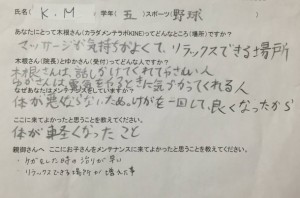 氏名( K.M 学年( 五 )スポーツ( 野球
あなたにとって木根さん(カラダメンテラボKINE)ってどんなところ(場所)ですか?
マッサージが気持ちがよくて、リラックスできる場所
木根さん(院長)とゆかさん(受付)ってどんな人ですか?
木根さんは、話しかけてくれてやさしい人
ゆかさんは電気をやるときに気づかってくれる人
なぜあなたはメンテナンスをしていますか?
して、良くなったから
ここに来てよかったと思うことを教えてください。
体が軽くなったこと
親御さんへ ここにお子さんをメンテナンスに来てよかったと思うことを教えてください。
・ケガをした時の治りが早い
・リラックスできる場所が増えた事